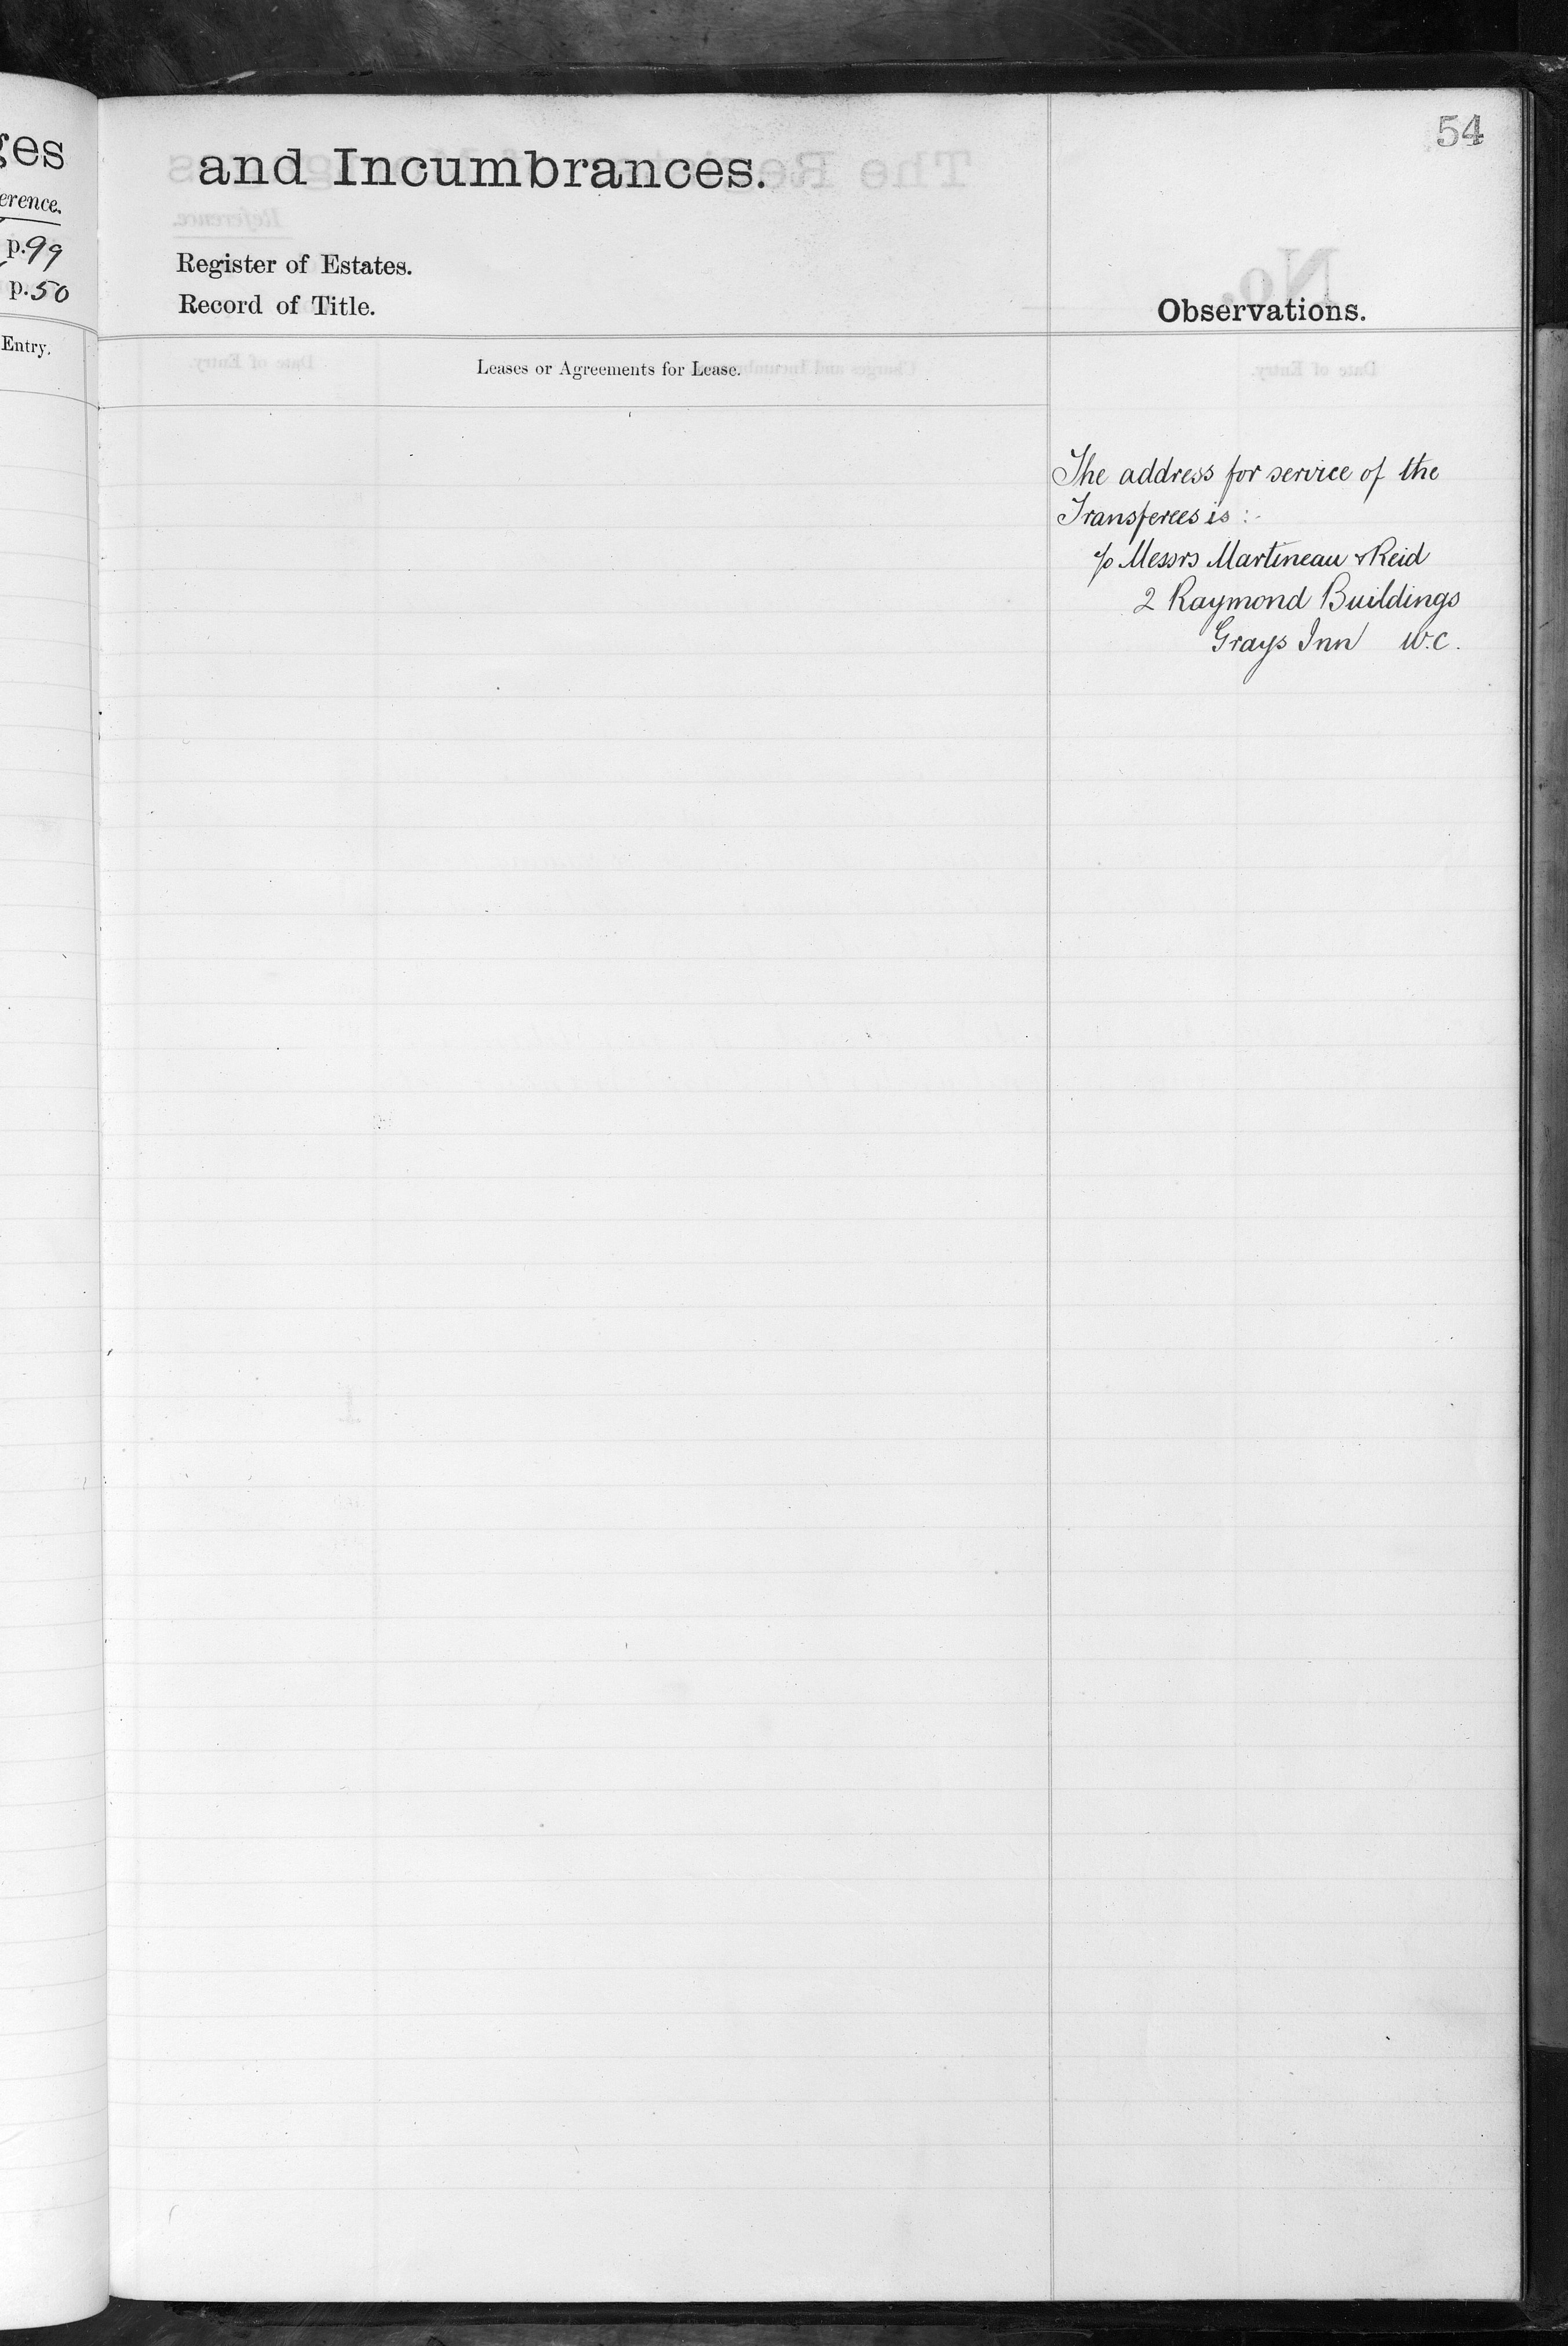 ges
erence.
p.99
p.50
Entry.
54
and Incumbrances.
Register of Estates.
Record of Title.
Observations.
Leases or Agreements for Lease.
The address for service of the
Transferees is :-
c/o Messrs Martineau & Reid
2 Raymond Buildings
Grays Inn W.C.